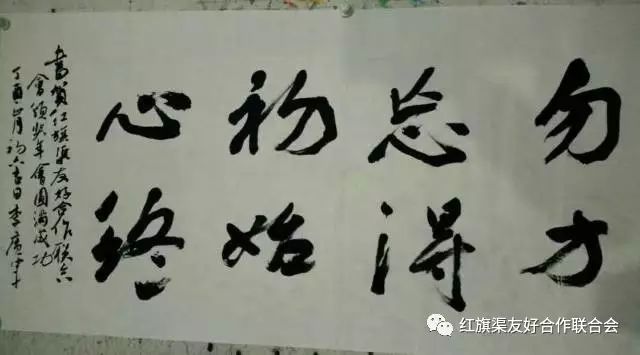 勿忘初心
方得始终
書贺红旗渠友好合作联合
會颁奖年會圆满成功
丁酉正月初六吉日李
红旗渠友好合作联合会